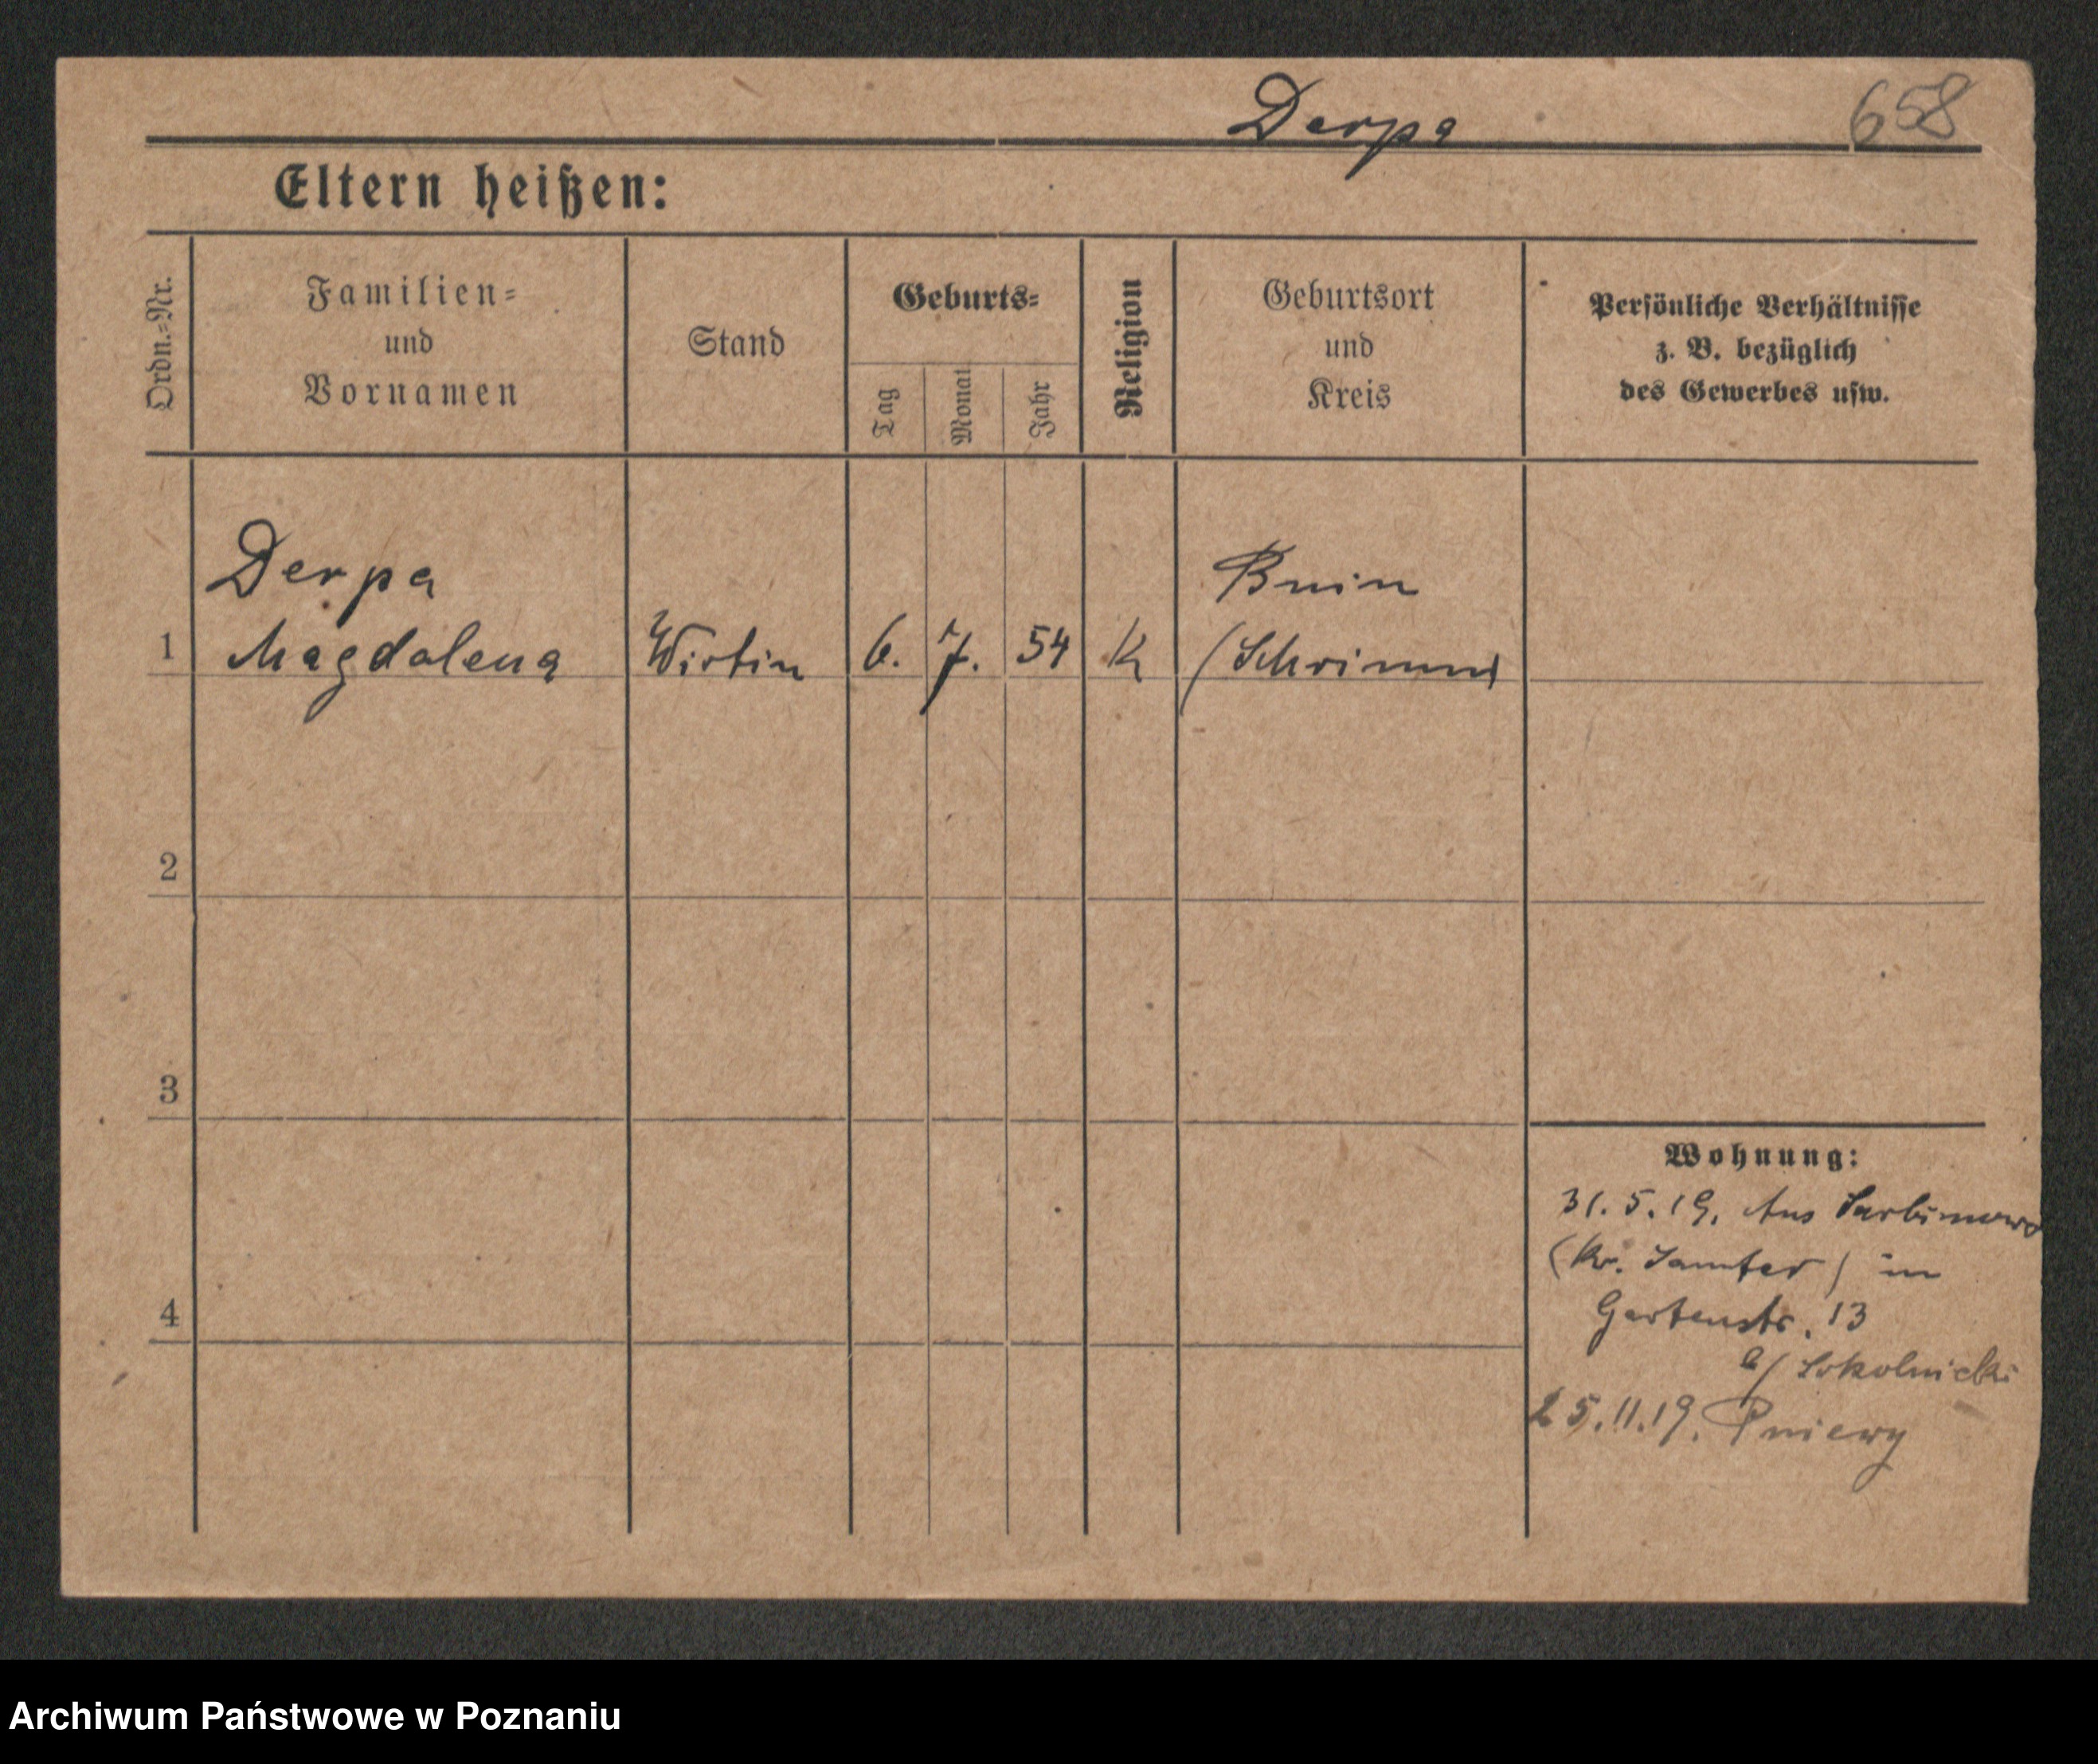 Derpa 658
Eltern heißen:
Ordn.-Nr.
Familien-
und
Vornamen
Stand
Geburts-
Tag
Monat
Jahr
Religion
Geburtsort
und
Kreis
Persönliche Verhältnisse
z. B. bezüglich
des Gewerbes usw.
Derpa
Bnin
1 Magdalena Wirtin 6. 7. 54 K (Schrimm)
2
3
Wohnung:
31.5.19. Aus Sarbinowo
(Kr. Samter) in
4
Gartenstr. 13
b/ Sokolnicki
25.11.19. Pniewy
Archiwum Państwowe w Poznaniu